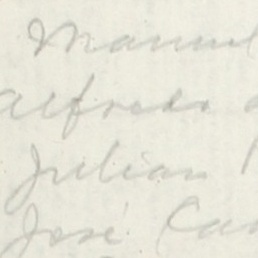 Manuel
Alfredo
Julian
José Ca